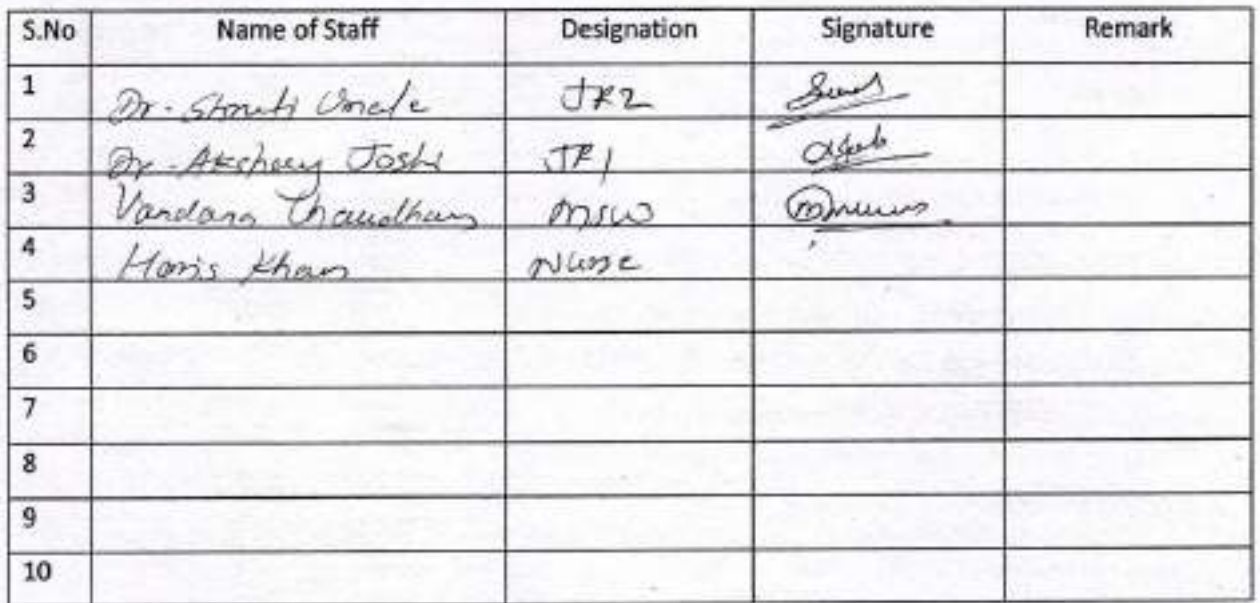 S.No Name of Staff Designation Signature Remark
1 Dr. Shruti Umale JR2
2 Dr. Akshay Joshi JR1
3 Vandana Chaudhary MSW
4 Haris Khan Nurse
5
6
7
8
9
10